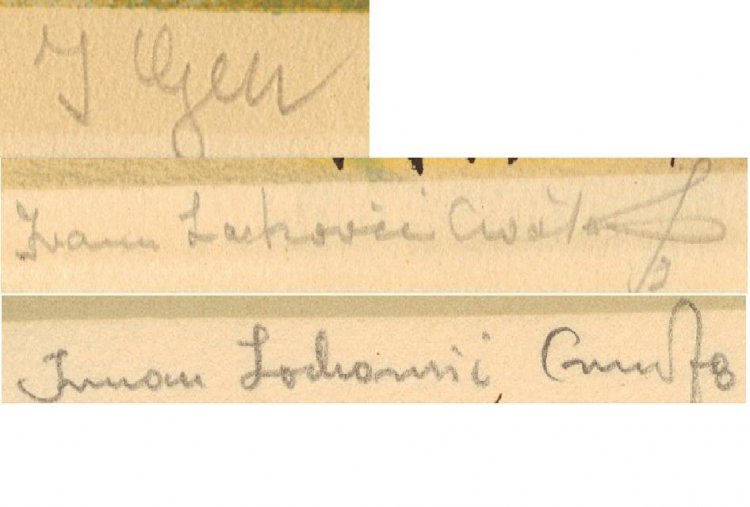 I Gen
Ivan Lacković Croata
Ivan Lacković